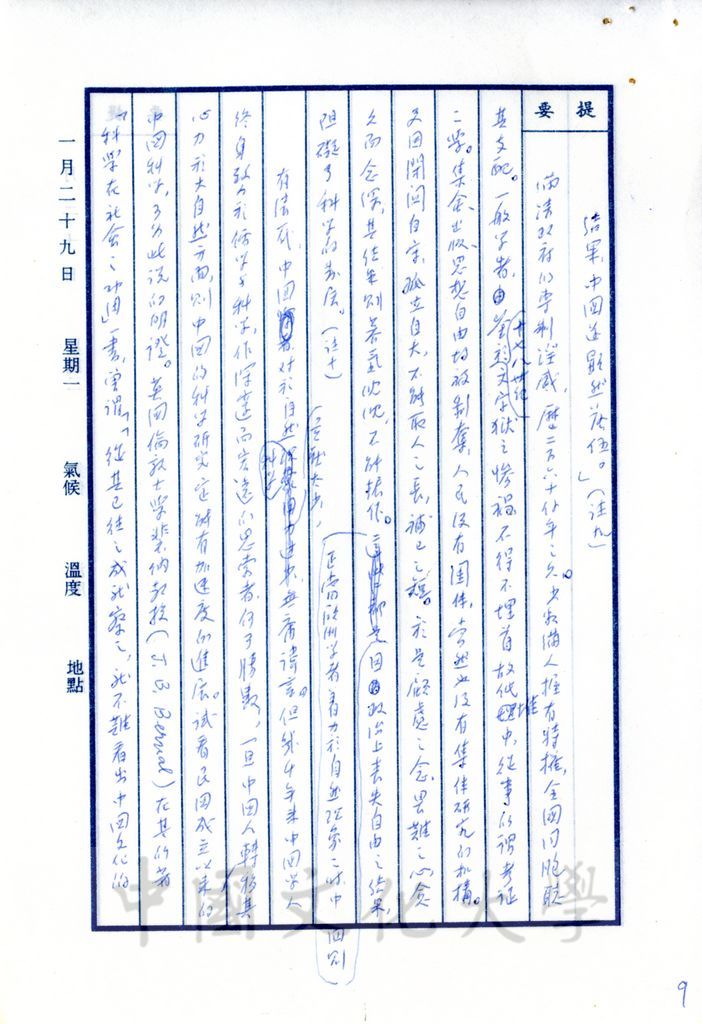 提要
結果,中國遂顯然落伍。」(註九)
滿清政府的專制淫威,歷二百六十餘年之久。少數滿人握有特權,全國同胞聽
其支配。一般學者,由 十七八世紀 文字獄之慘禍,不得不埋首故紙堆中,從事所謂考証
之學。集會、出版、思想自由均被剝奪,人民沒有團体,當然也沒有集体研究的機構。
又因閉関自守,孤立自大,不能取人之長,補己之短。於是顧慮之念,畏難之心,愈
久而愈深,其結果則暮氣沈沈,不能振作。這些都是因政治上喪失自由之結果,
阻礙了科學的發展。(註十)
正當歐洲學者着力於自然現象之時,中國則
有清一代,中國 對於自然科學 無庸諱言。但幾千年來中國學人
終身致力於儒學與科學,作深邃而宏遠的思索者,何可勝數,一旦中國人轉移其
心力於大自然方面,則中國的科學研究定能有加速度的進展。試看民國成立以來的
中國科學,可為此說的明證。英國倫敦大學裴納教授(J. B. Bernal)在其所著
「科學在社會之功用」一書,曾謂「從其已往之成就察之,就不難看出中國文化的
一月二十九日 星期一 氣候 溫度 地點
中國文化大學
9